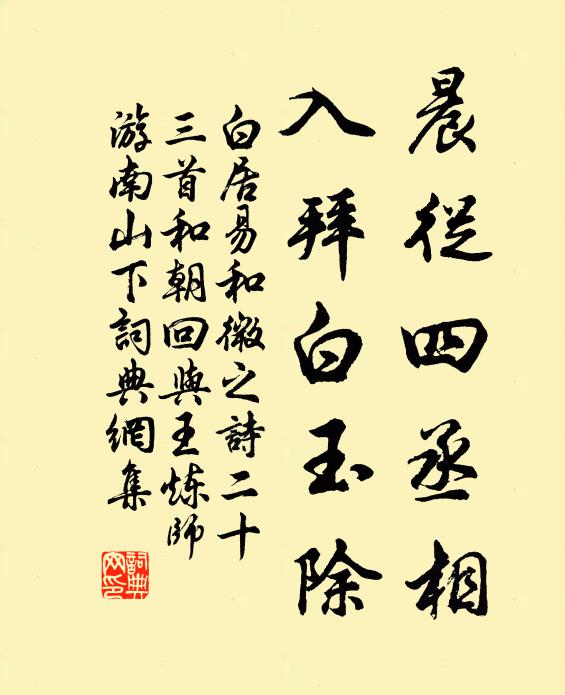 晨從四丞相
入拜白玉除
白居易和微之詩二十
三首和朝回與王煉師
游南山下詞典網集
詞典
网印